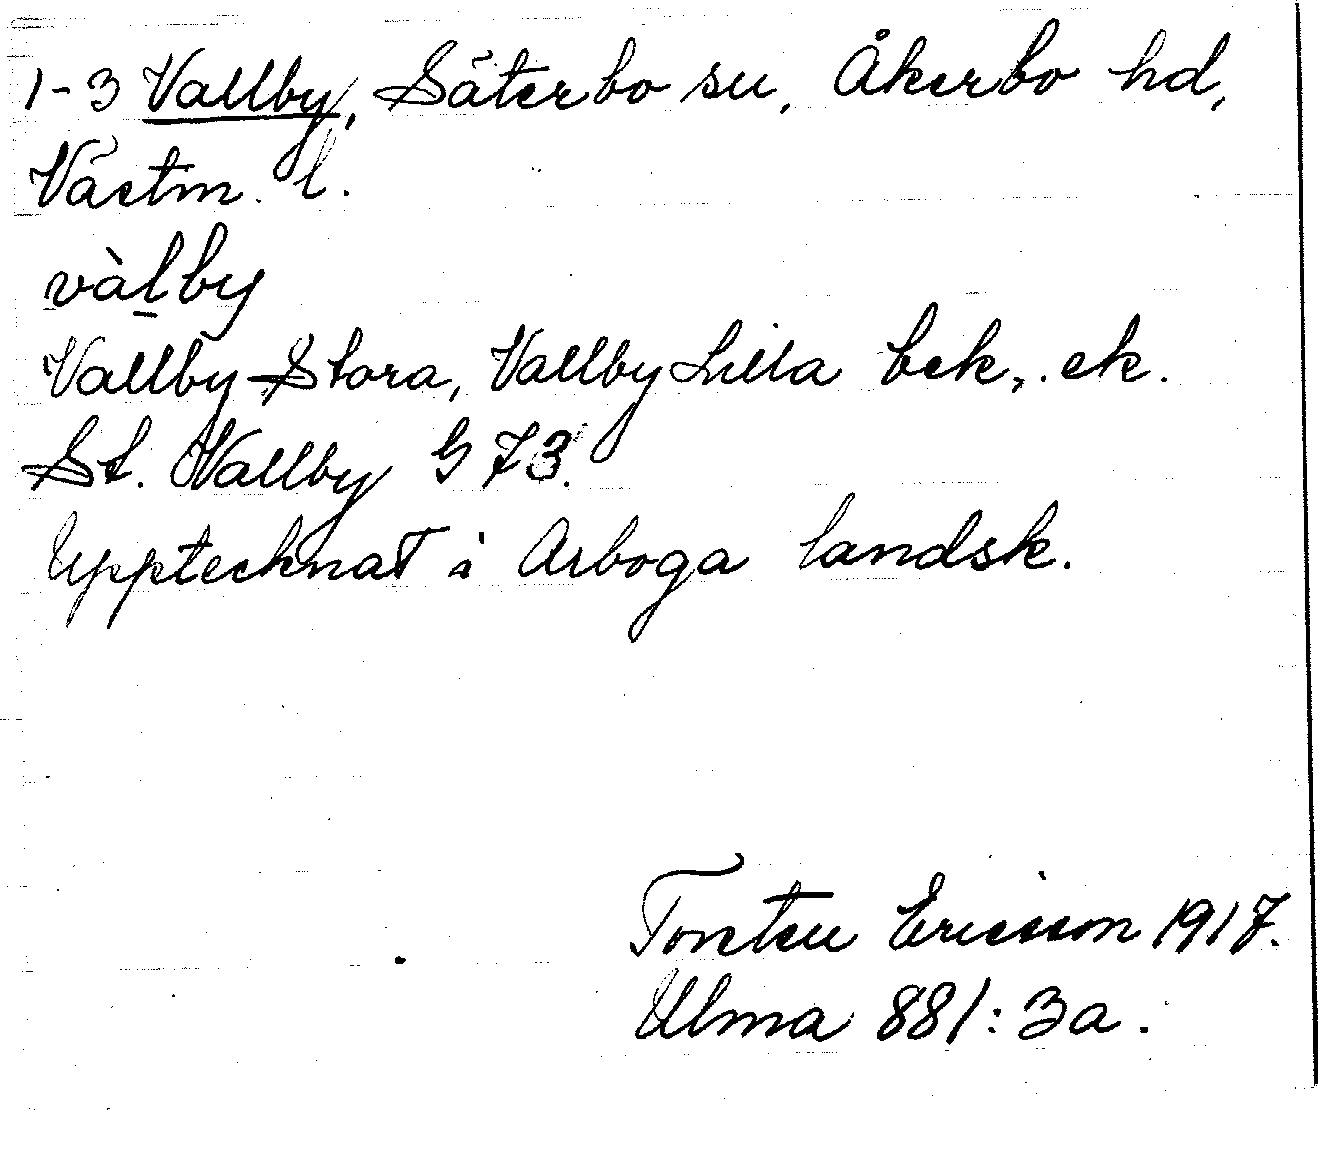 1-3 Vallby, Säterbo sn, Åkerbo hd,
Västm. l.
vàl̠by
Vallby Stora, Vallby Lilla bek., ek.
St. Vallby G 73.
Upptecknat i Arboga landsk.
Torsten Ericsson 1917.
Ulma 881:3a.